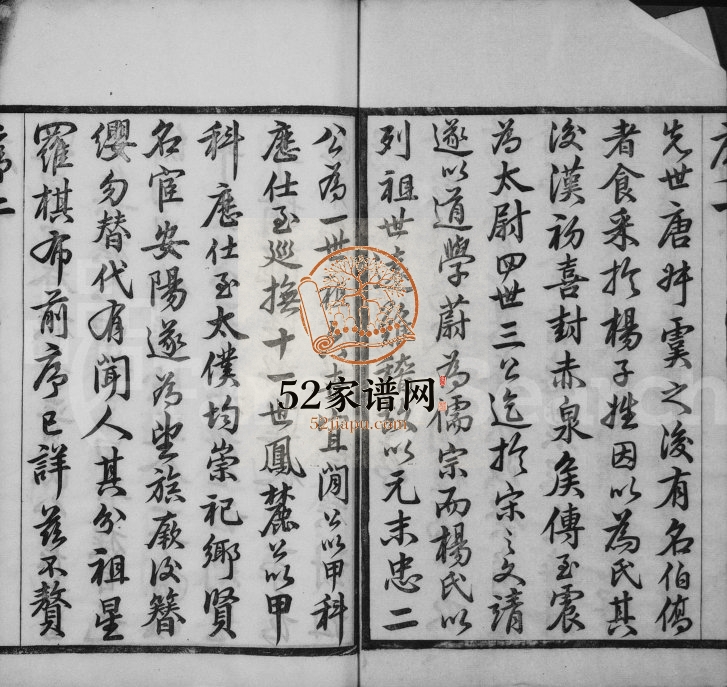 先世唐叔虞之後有名伯僑
者食采於楊子姓因以為氏其
後漢初喜封赤泉侯傳至震
為太尉四世三公迄於宋之文靖
遂以道學蔚為儒宗而楊氏以
列祖世以元末忠二
公為一世祖閒公以甲科
應仕至巡撫十一世鳳麓公以甲
科應仕至太僕均崇祀鄉賢
名宦安陽遂為望族厥後簪
纓勿替代有聞人其分祖星
羅棋布前序已詳茲不贅
序二
52家谱网
52jiapu.com